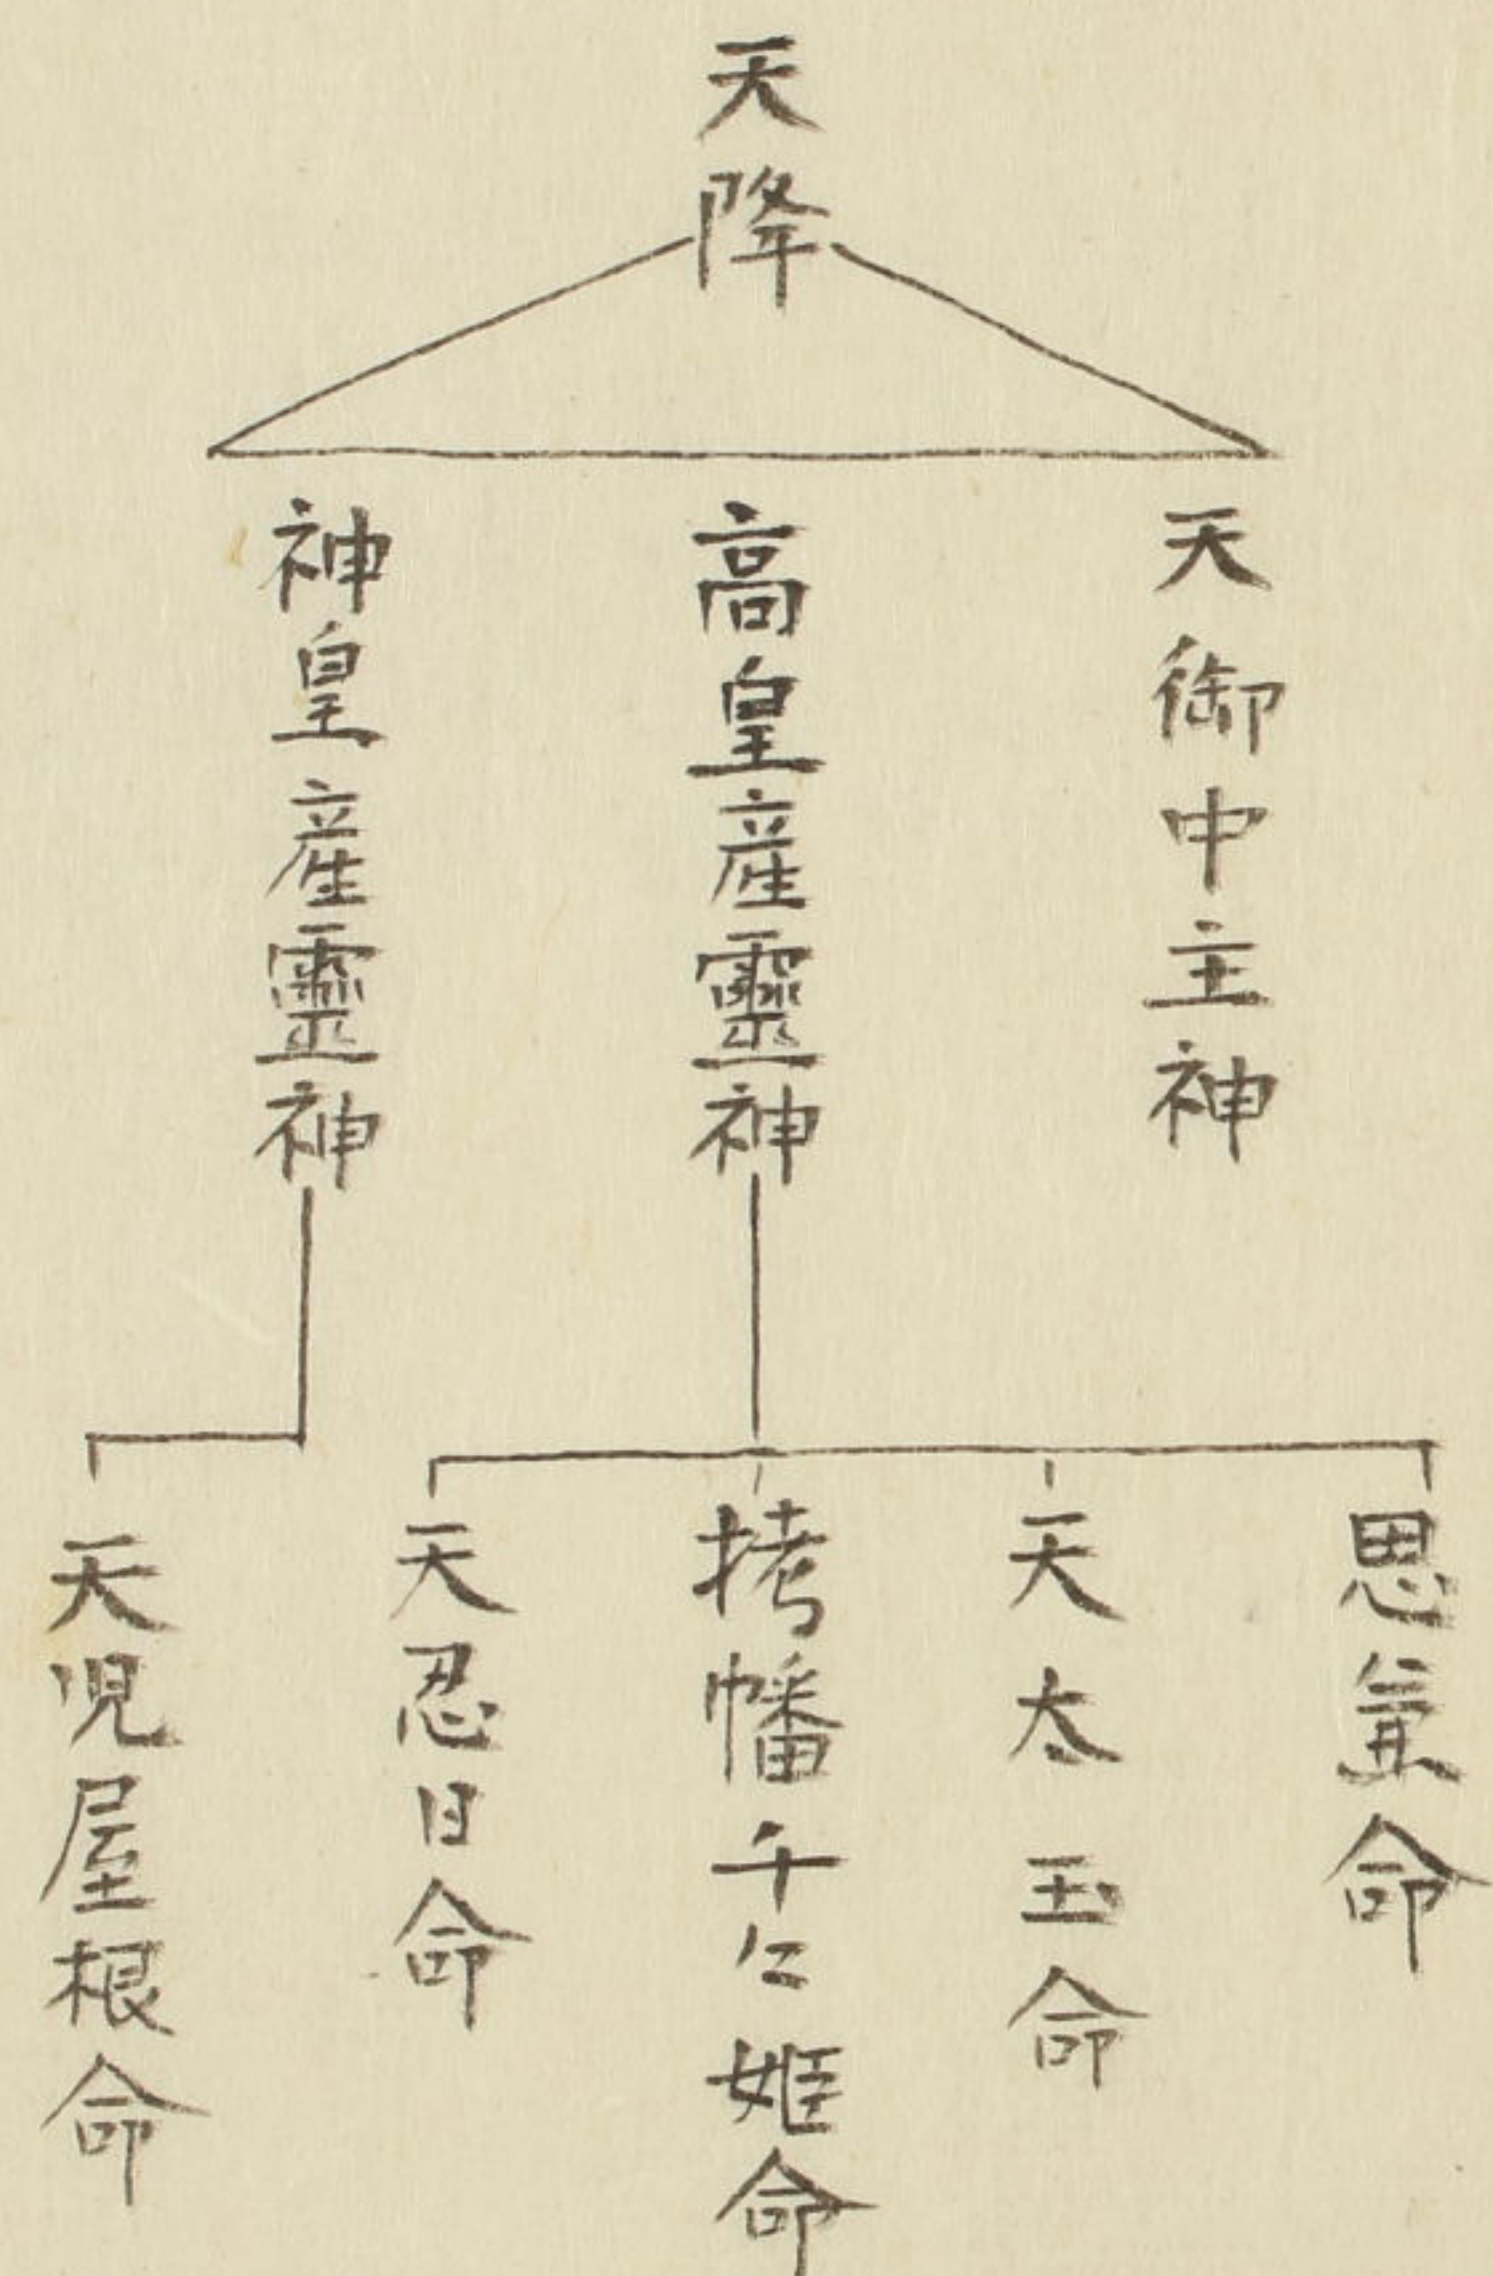 天降
天御中主神
高皇産靈神
神皇産靈神
思兼命
天太玉命
栲幡千々姫命
天忍日命
天児屋根命